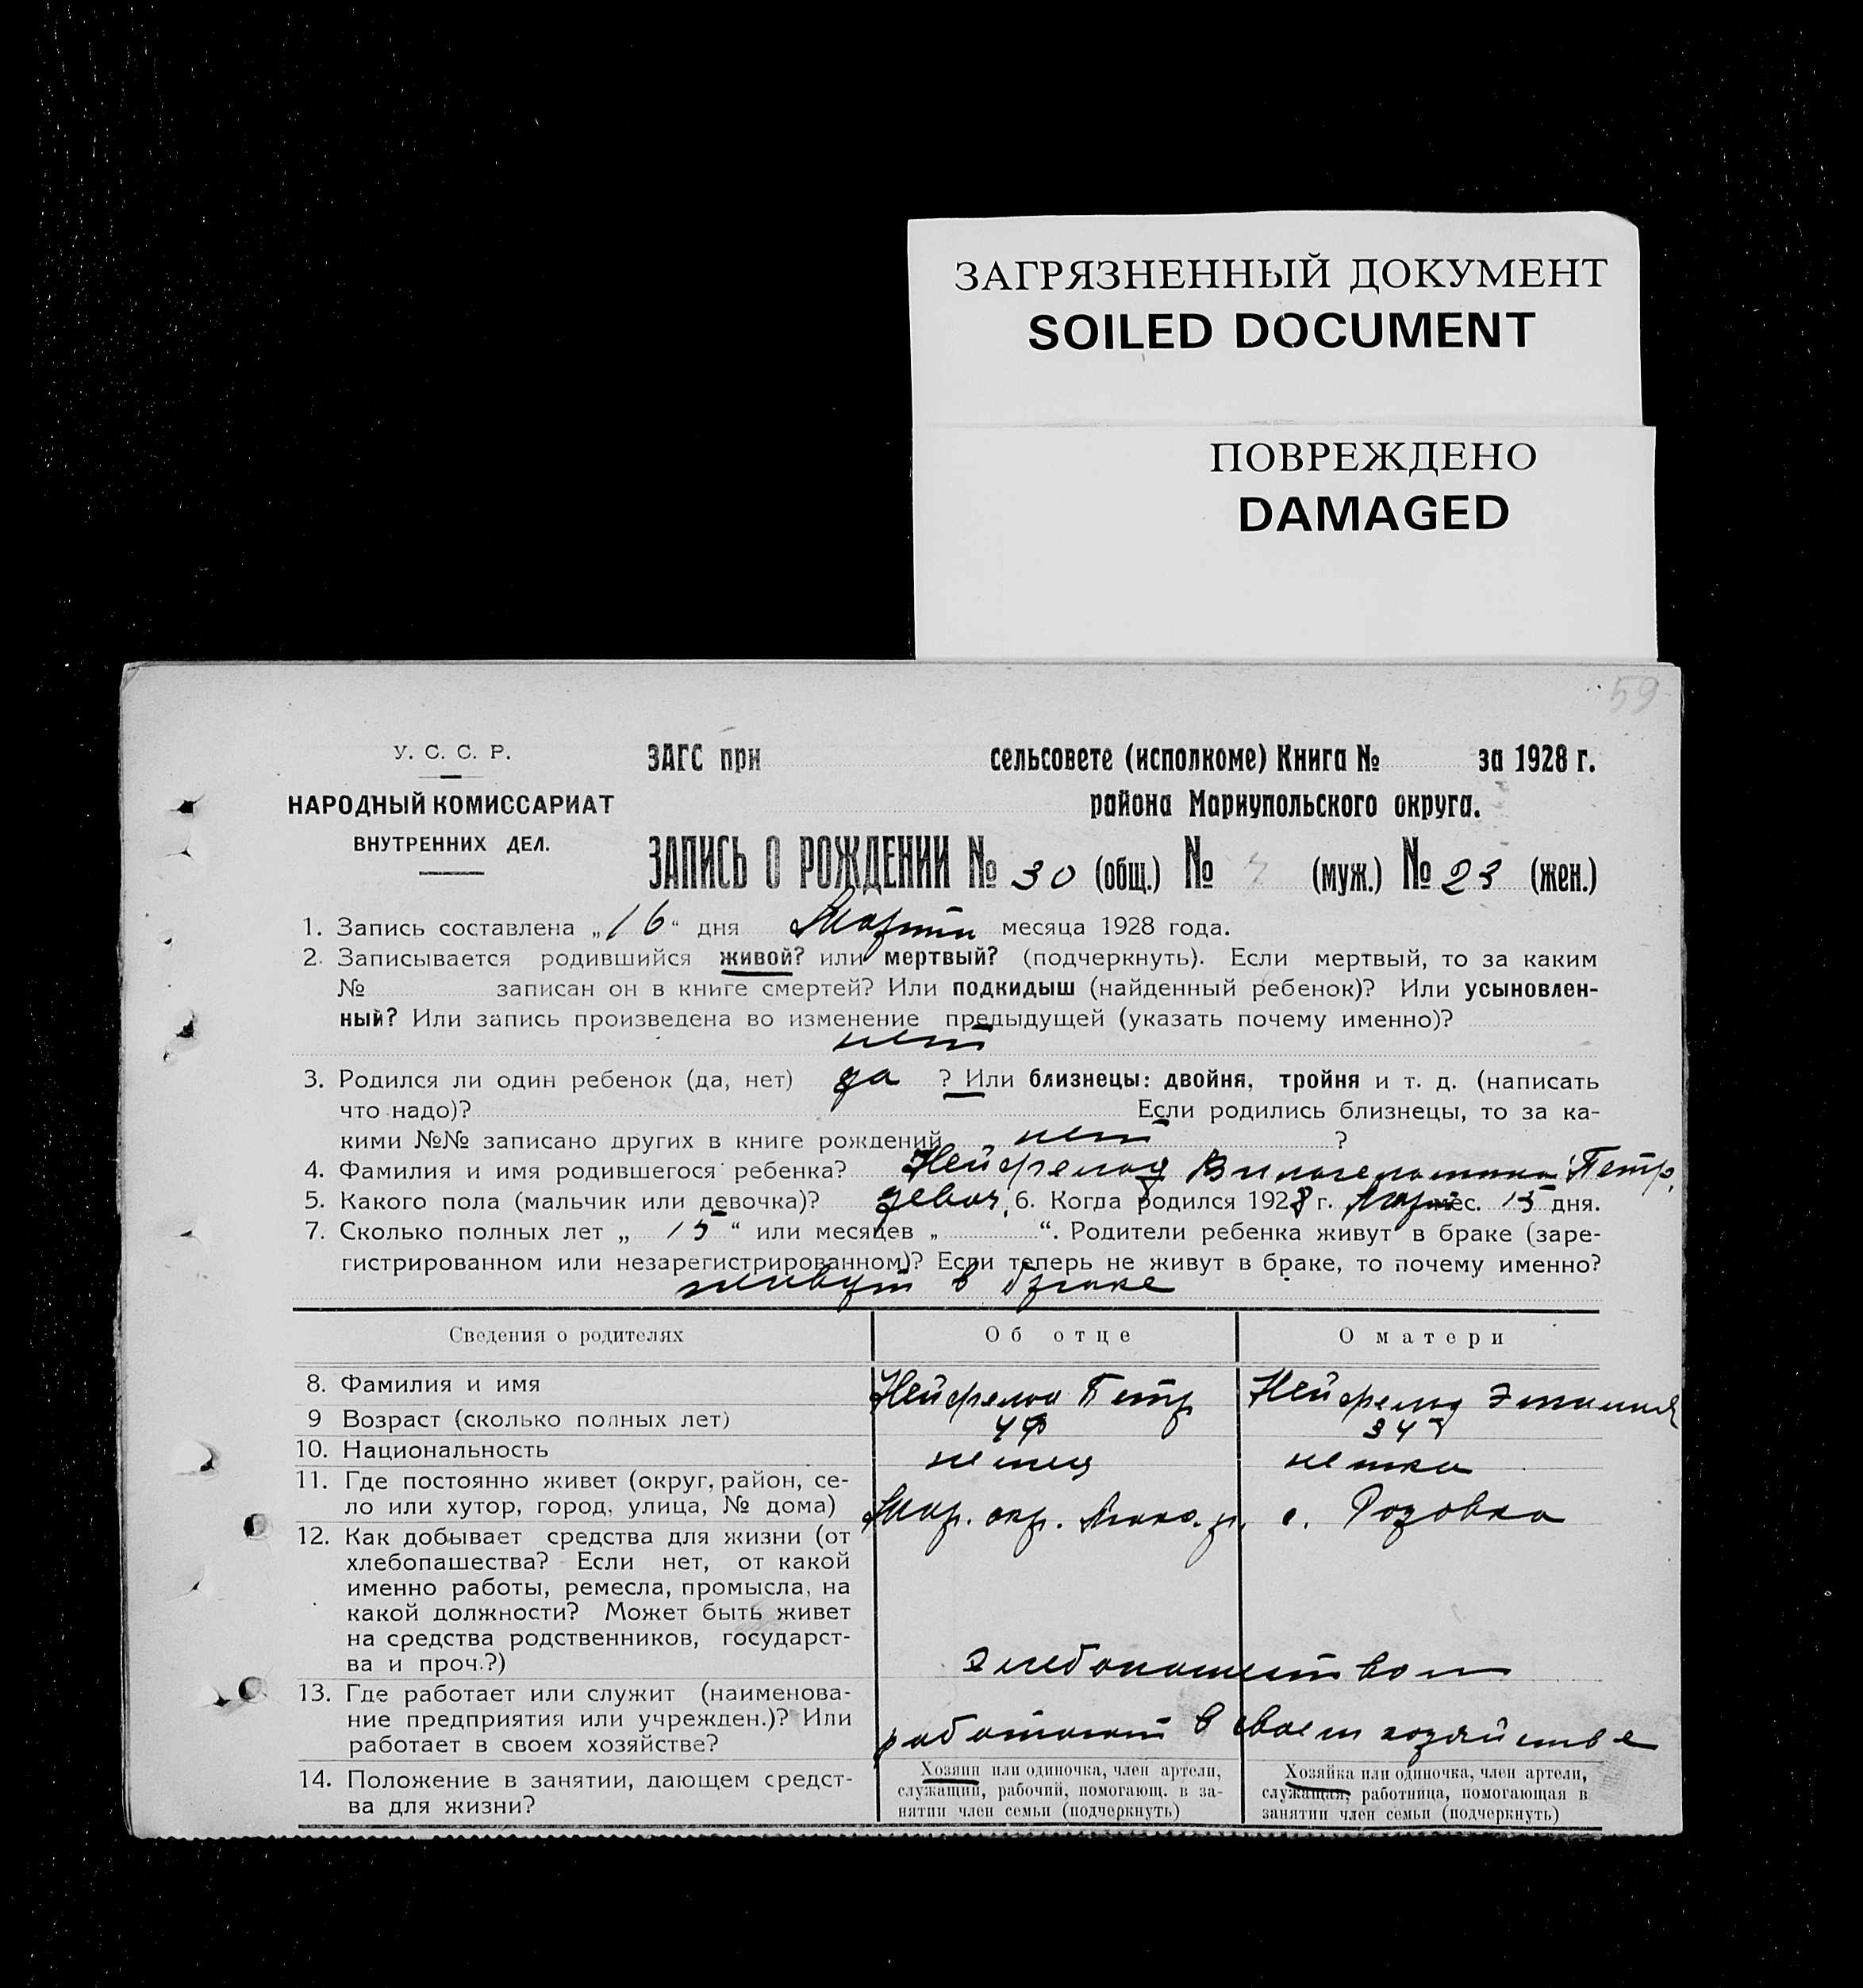 ЗАГРЯЗНЕННЫЙ ДОКУМЕНТ
SOILED DOCUMENT
ПОВРЕЖДЕНО
DAMAGED
59
У. С. С. Р.
НАРОДНЫЙ КОМИССАРИАТ
ВНУТРЕННИХ ДЕЛ.
ЗАГС при сельсовете (исполкоме) Книга № за 1928 г.
района Мариупольского округа.
ЗАПИСЬ О РОЖДЕНИИ № 30 (общ.) № 7 (муж.) № 23 (жен.)
1. Запись составлена „16“ дня Марта месяца 1928 года.
2. Записывается родившийся живой? или мертвый? (подчеркнуть). Если мертвый, то за каким
№ записан он в книге смертей? Или подкидыш (найденный ребенок)? Или усыновлен-
ный? Или запись произведена во изменение предыдущей (указать почему именно)?
нет
3. Родился ли один ребенок (да, нет) да ? Или близнецы: двойня, тройня и т. д. (написать
что надо)? Если родились близнецы, то за ка-
кими №№ записано других в книге рождений нет ?
4. Фамилия и имя родившегося ребенка? Нейфельд Вильгельмина Петр.
5. Какого пола (мальчик или девочка)? девоч. 6. Когда родился 1928 г. Март мес. 15 дня.
7. Сколько полных лет „ 15 “ или месяцев „ “. Родители ребенка живут в браке (заре-
гистрированном или незарегистрированном)? Если теперь не живут в браке, то почему именно?
живут в браке
Сведения о родителях Об отце О матери
8. Фамилия и имя Нейфельд Петр Нейфельд Эмилия
9 Возраст (сколько полных лет) 34
10. Национальность немец немка
11. Где постоянно живет (округ, район, се-
ло или хутор, город, улица, № дома) Мар. окр. с. Розовка
12. Как добывает средства для жизни (от
хлебопашества? Если нет, от какой
именно работы, ремесла, промысла, на
какой должности? Может быть живет
на средства родственников, государст-
ва и проч.?) хлебопашеством
13. Где работает или служит (наименова-
ние предприятия или учрежден.)? Или
работает в своем хозяйстве? работают в своем хозяйстве
14. Положение в занятии, дающем средст-
ва для жизни?
Хозяин или одиночка, член артели,
служащий, рабочий, помогающ. в за-
нятии член семьи (подчеркнуть)
Хозяйка или одиночка, член артели,
служащая, работница, помогающая в
занятии член семьи (подчеркнуть)